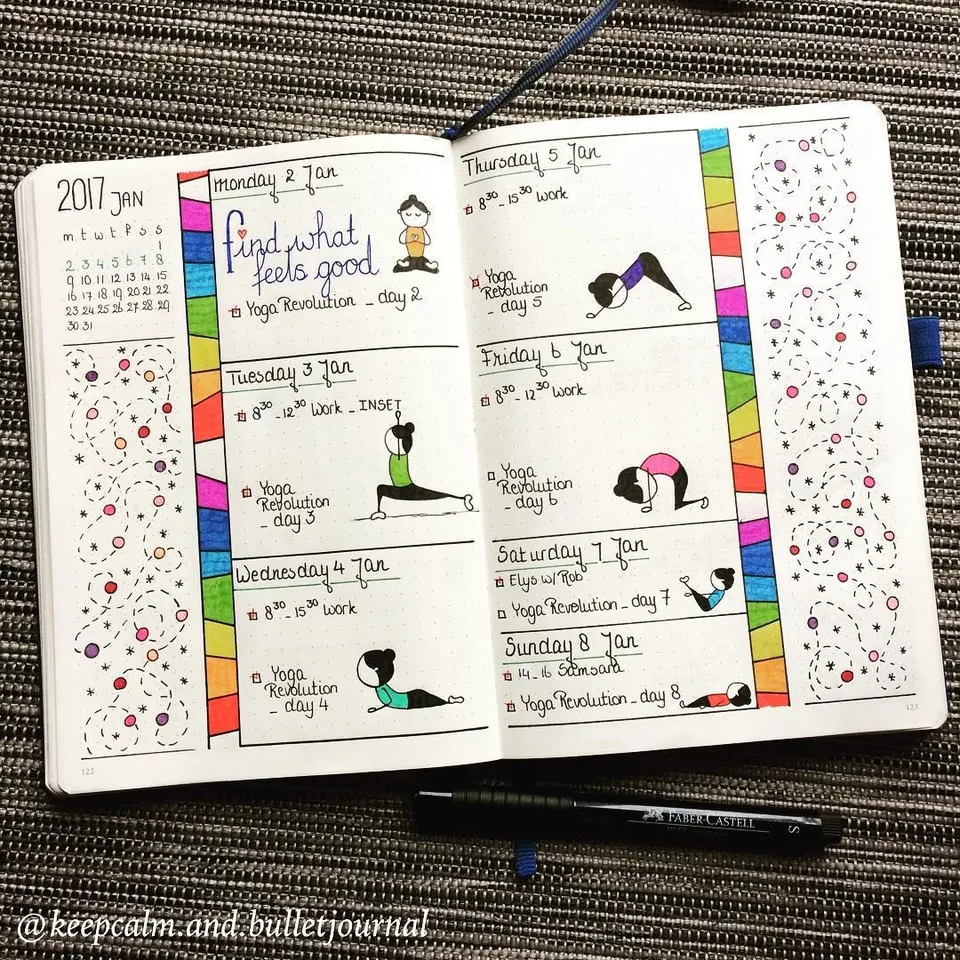 2017 JAN
m t w t f s s
1
2 3 4 5 6 7 8
9 10 11 12 13 14 15
16 17 18 19 20 21 22
23 24 25 26 27 28 29
30 31
Monday 2 Jan
find what
feels good
Yoga Revolution _ day 2
Tuesday 3 Jan
8³⁰ - 12³⁰ Work _ INSET
Yoga
Revolution
_ day 3
Wednesday 4 Jan
8³⁰ - 15³⁰ Work
Yoga
Revolution
_ day 4
122
Thursday 5 Jan
8³⁰ - 15³⁰ Work
Yoga
Revolution
- day 5
Friday 6 Jan
8³⁰ - 12³⁰ Work
Yoga
Revolution
_ day 6
Saturday 7 Jan
Elys w/ Rob
Yoga Revolution _ day 7
Sunday 8 Jan
14 - 16 Samsara
Yoga Revolution _ day 8
123
FABER-CASTELL
S
@keepcalm.and.bulletjournal